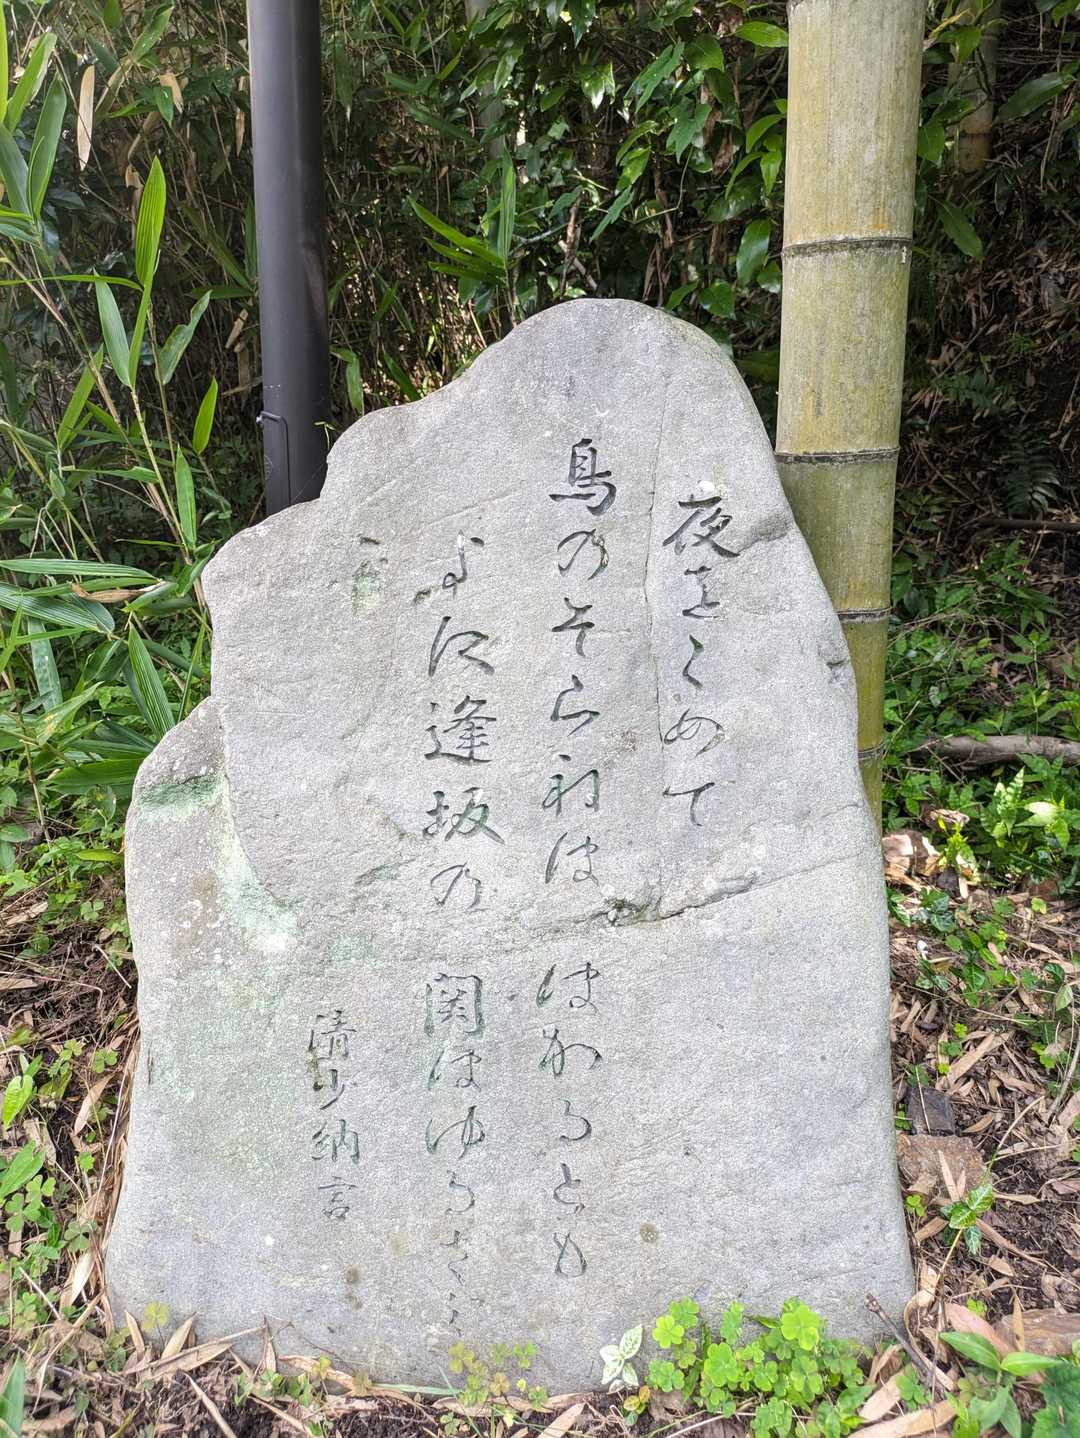 夜をこめて
鳥のそらねは はかるとも
よに逢坂の 関はゆるさじ
清少納言